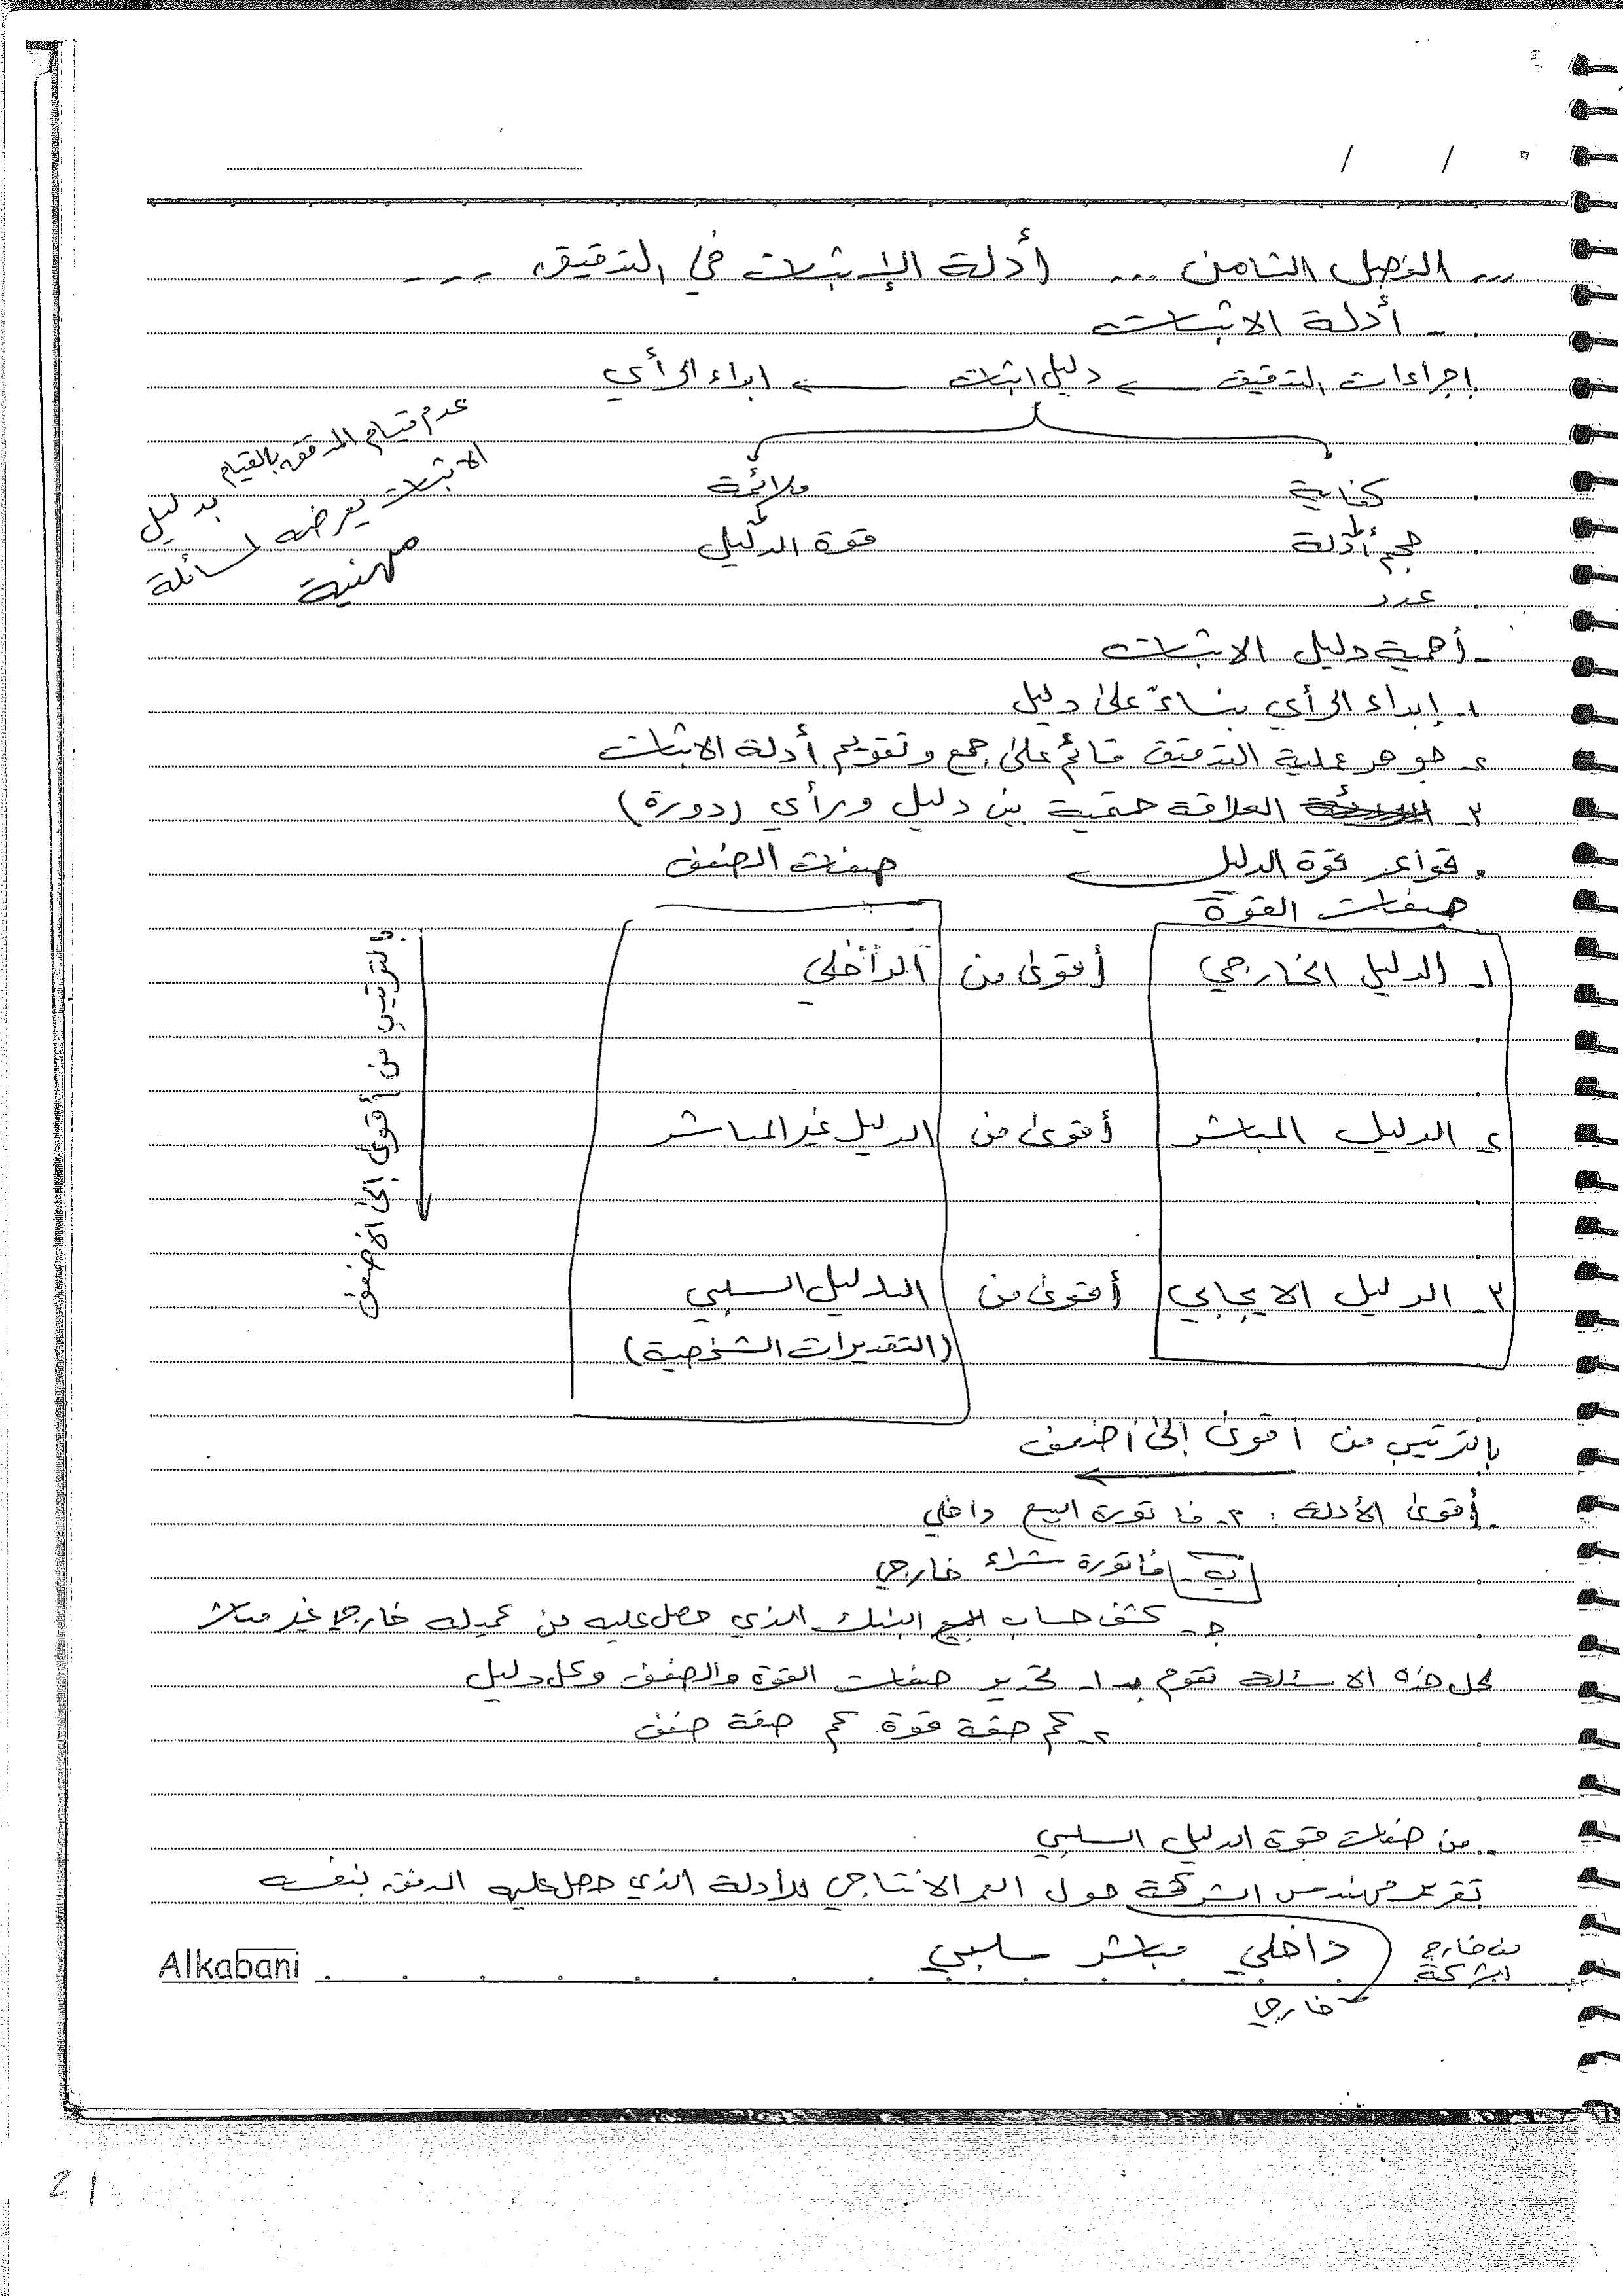 / /
... الفصل الثامن ... أدلة الإثبات في التدقيق ...
- أدلة الاثبات
إجراءات التدقيق ← دليل اثبات ← ابداء الرأي
كفاية ملائمة
حجم أدلة قوة الدليل
عدد
عدم قيام المدقق بالقيام بدليل
الاثبات يعرضه لمسائلة
مهنية
- أهمية دليل الاثبات
١- إبداء الرأي بناءً على دليل
٢- جوهر عملية التدقيق قائم على جمع وتقويم أدلة الاثبات
٣- العلاقة حتمية بين دليل ورأي (دورة)
. قواعد قوة الدليل ← صفات الضعف
صفات القوة
١- الدليل الخارجي أقوى من الداخلي
٢- الدليل المباشر أقوى من الدليل غير المباشر
٣- الدليل الايجابي أقوى من الدليل السلبي
(التقديرات الشخصية)
بالترتيب من أقوى إلى الأضعف
بالترتيب من أقوى إلى أضعف
- أقوى الأدلة : ٢- فاتورة البيع داخلي
ب- فاتورة شراء خارجي
ج- كشف حساب البنك الذي حصل عليه من عميله خارجي غير مباشر
لحل هذه الاسئلة نقوم بـ ١- تحديد صفات القوة والضعف وكل دليل
٢- كم صفة قوة كم صفة ضعف
- من صفات قوة الدليل السلبي
تقرير مهندس الشركة حول العمر الانتاجي للأدلة الذي حصل عليه المدقق بنفسه
من خارج الشركة داخلي مباشر سلبي
خارجي
Alkabani
21